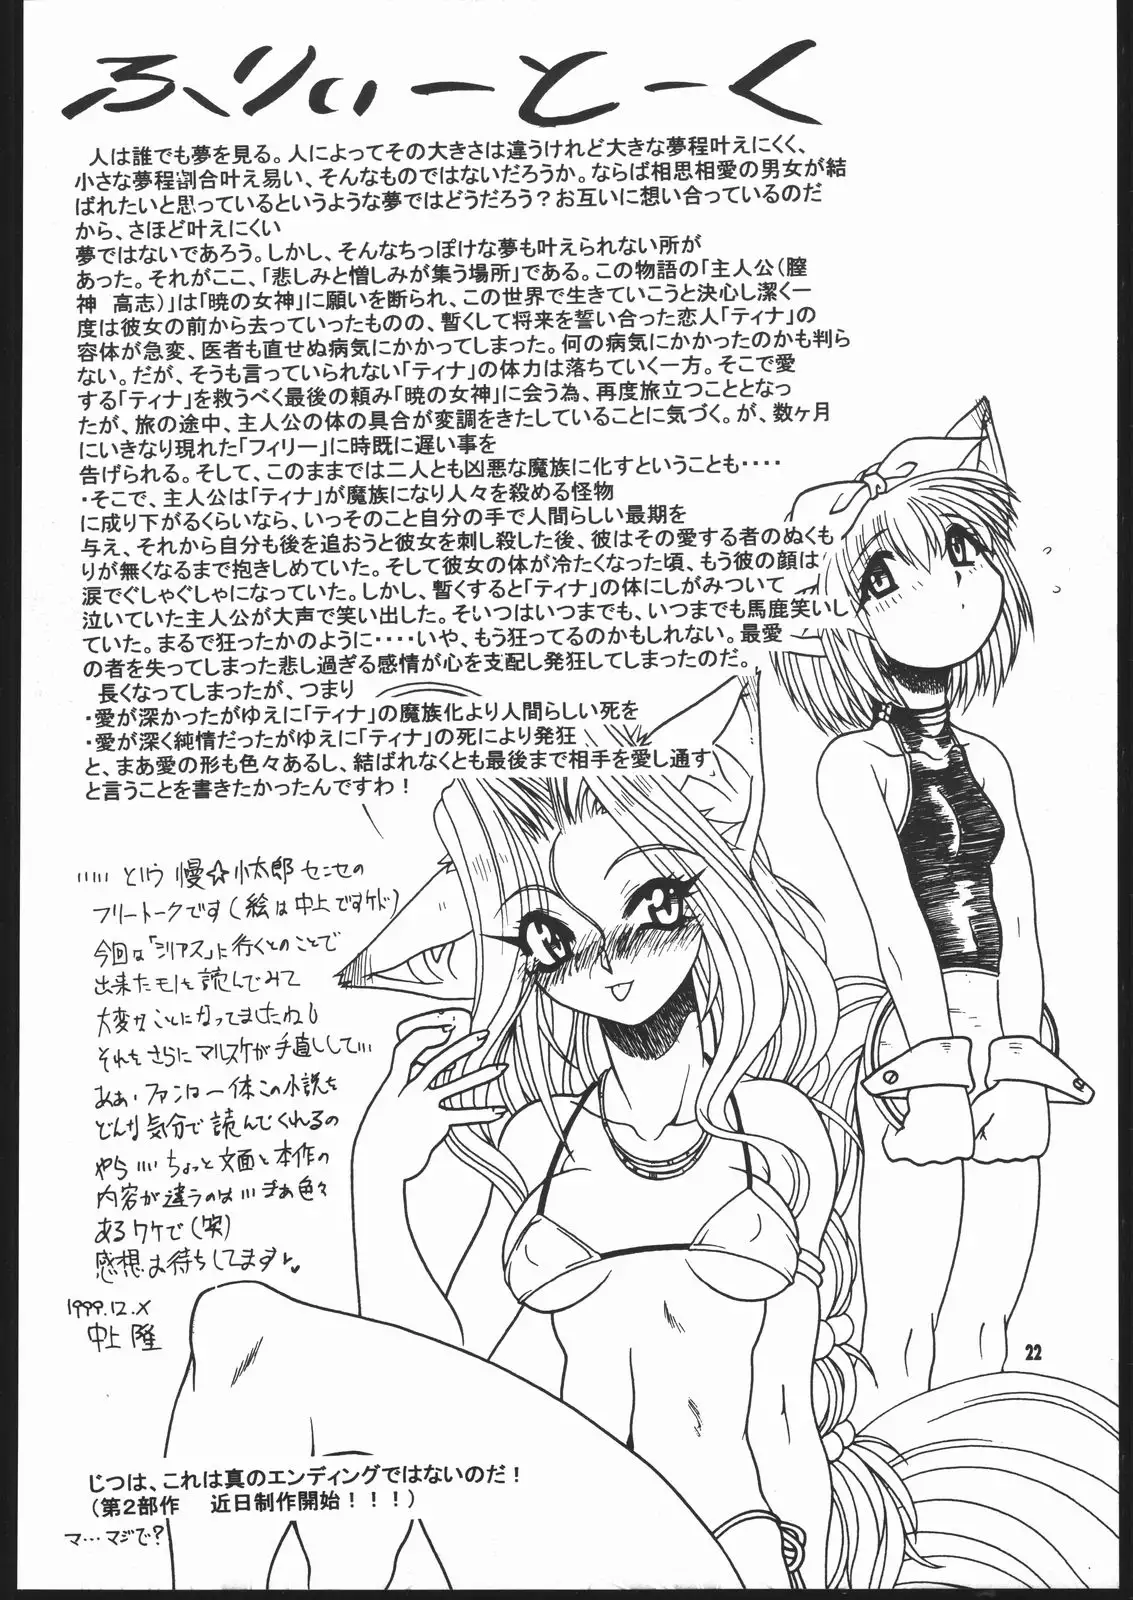 ふりぃーとーく
人は誰でも夢を見る。人によってその大きさは違うけれど大きな夢程叶えにくく、
小さな夢程割合叶え易い、そんなものではないだろうか。ならば相思相愛の男女が結
ばれたいと思っているというような夢ではどうだろう？お互いに想い合っているのだ
から、さほど叶えにくい
夢ではないであろう。しかし、そんなちっぽけな夢も叶えられない所が
あった。それがここ、「悲しみと憎しみが集う場所」である。この物語の「主人公（膣
神　高志）」は「暁の女神」に願いを断られ、この世界で生きていこうと決心し潔く一
度は彼女の前から去っていったものの、暫くして将来を誓い合った恋人「ティナ」の
容体が急変、医者も直せぬ病気にかかってしまった。何の病気にかかったのかも判ら
ない。だが、そうも言っていられない「ティナ」の体力は落ちていく一方。そこで愛
する「ティナ」を救うべく最後の頼み「暁の女神」に会う為、再度旅立つこととなっ
たが、旅の途中、主人公の体の具合が変調をきたしていることに気づく。が、数ヶ月
にいきなり現れた「フィリー」に時既に遅い事を
告げられる。そして、このままでは二人とも凶悪な魔族に化すということも・・・・
・そこで、主人公は「ティナ」が魔族になり人々を殺める怪物
に成り下がるくらいなら、いっそのこと自分の手で人間らしい最期を
与え、それから自分も後を追おうと彼女を刺し殺した後、彼はその愛する者のぬくも
りが無くなるまで抱きしめていた。そして彼女の体が冷たくなった頃、もう彼の顔は
涙でぐしゃぐしゃになっていた。しかし、暫くすると「ティナ」の体にしがみついて
泣いていた主人公が大声で笑い出した。そいつはいつまでも、いつまでも馬鹿笑いし
ていた。まるで狂ったかのように・・・・いや、もう狂ってるのかもしれない。最愛
の者を失ってしまった悲し過ぎる感情が心を支配し発狂してしまったのだ。
長くなってしまったが、つまり
・愛が深かったがゆえに「ティナ」の魔族化より人間らしい死を
・愛が深く純情だったがゆえに「ティナ」の死により発狂
と、まあ愛の形も色々あるし、結ばれなくとも最後まで相手を愛し通す
と言うことを書きたかったんですわ！
…… という 慢☆小太郎 センセの
フリートークです（絵は中上ですケド）
今回は「シリアス」に行くとのことで
出来たモノを読んでみて
大変なことになってましたねし
それをさらにマルスケが手直しして…
ああ、ファンは一体この小説を
どんな気分で読んでくれるの
やら…… ちょっと文面と本作の
内容が違うのは… まあ色々
あるワケで（笑）
感想お待ちしてます♥
1999.12.X
中上 隆
22
じつは、これは真のエンディングではないのだ！
（第２部作　近日制作開始！！！）
マ…マジで？